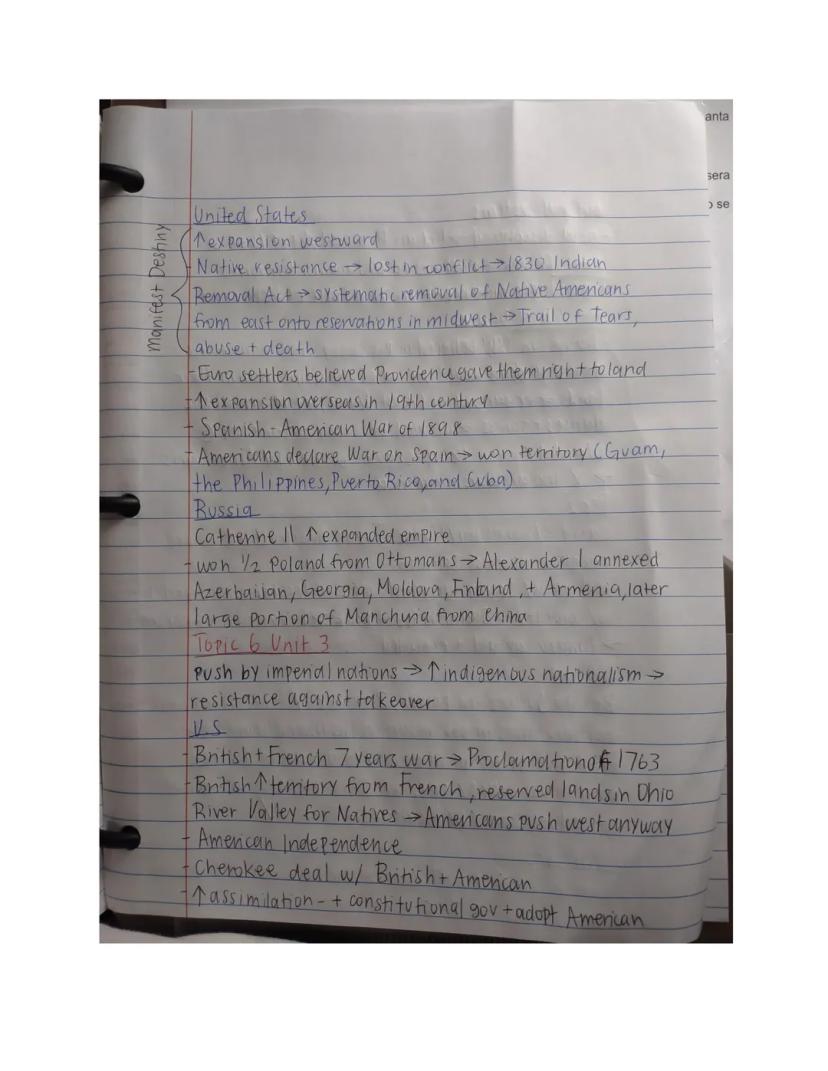 anta
sera
o se
United States
↑expansion westward
Native resistance → lost in conflict → 1830 Indian
Removal Act → systematic removal of Native Americans
from east onto reservations in midwest → Trail of Tears,
abuse + death
Manifest Destiny
-Euro settlers believed Providence gave them right to land
-↑expansion overseas in 19th century
- Spanish-American War of 1898
- Americans declare War on Spain → won territory (Guam,
the Philippines, Puerto Rico, and Cuba)
Russia
Catherine II ↑ expanded empire
- won 1/2 Poland from Ottomans → Alexander I annexed
Azerbaijan, Georgia, Moldova, Finland, + Armenia, later
large portion of Manchuria from China
Topic 6 Unit 3
push by imperial nations → ↑indigenous nationalism →
resistance against takeover
U.S
- British + French 7 years war → Proclamation of 1763
- British ↑ territory from French, reserved lands in Ohio
River Valley for Natives → Americans push west anyway
- American Independence
- Cherokee deal w/ British + American
- ↑ assimilation - + constitutional gov + adopt American